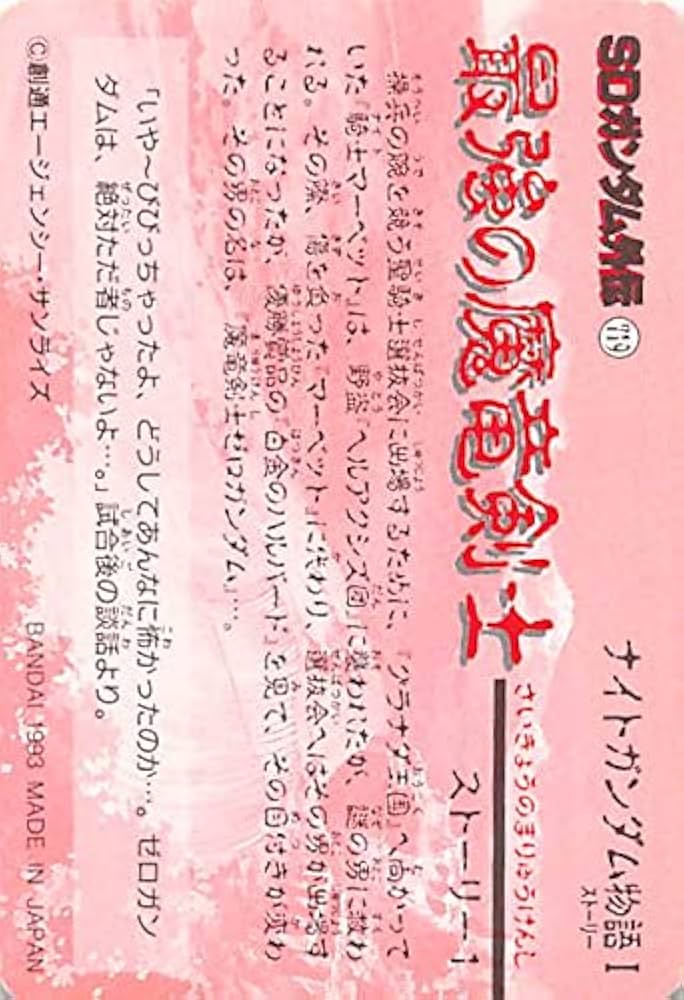 SDガンダム外伝 719
ナイトガンダム物語 I
ストーリー
最強の魔竜剣士
さいきょうのまりゅうけんし
ストーリー1
操兵の腕を競う聖騎士選抜会に出場するために、『グラナダ王国』へ向かって
いた『騎士マーベット』は、野盗『ヘルアクシズ団』に襲われたが、謎の男に救わ
れる。その際、傷を負った『マーベット』に代わり、選抜会へはその男が出場す
ることになったが、優勝賞品の『白金のハルバード』を見て、その目付きが変わ
った。その男の名は、『魔竜剣士ゼロガンダム』…。
「いや〜びびっちゃったよ、どうしてあんなに怖かったのか…。ゼロガン
ダムは、絶対ただ者じゃないよ…。」試合後の談話より。
©創通エージェンシー・サンライズ
BANDAI 1993 MADE IN JAPAN